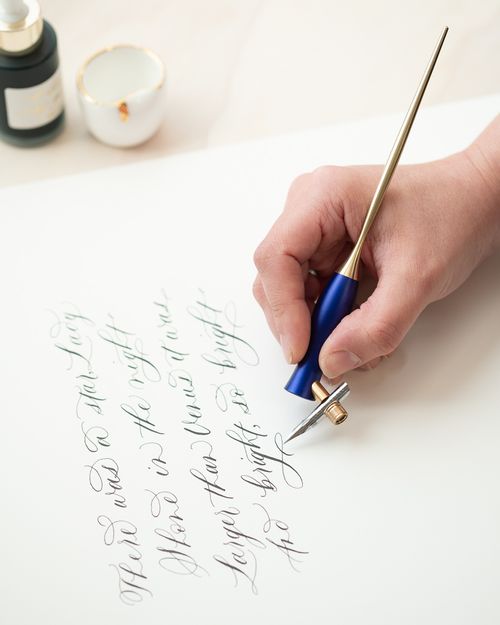 There was a star
Shone in the night
Larger than Venus it was
And bright, so bright